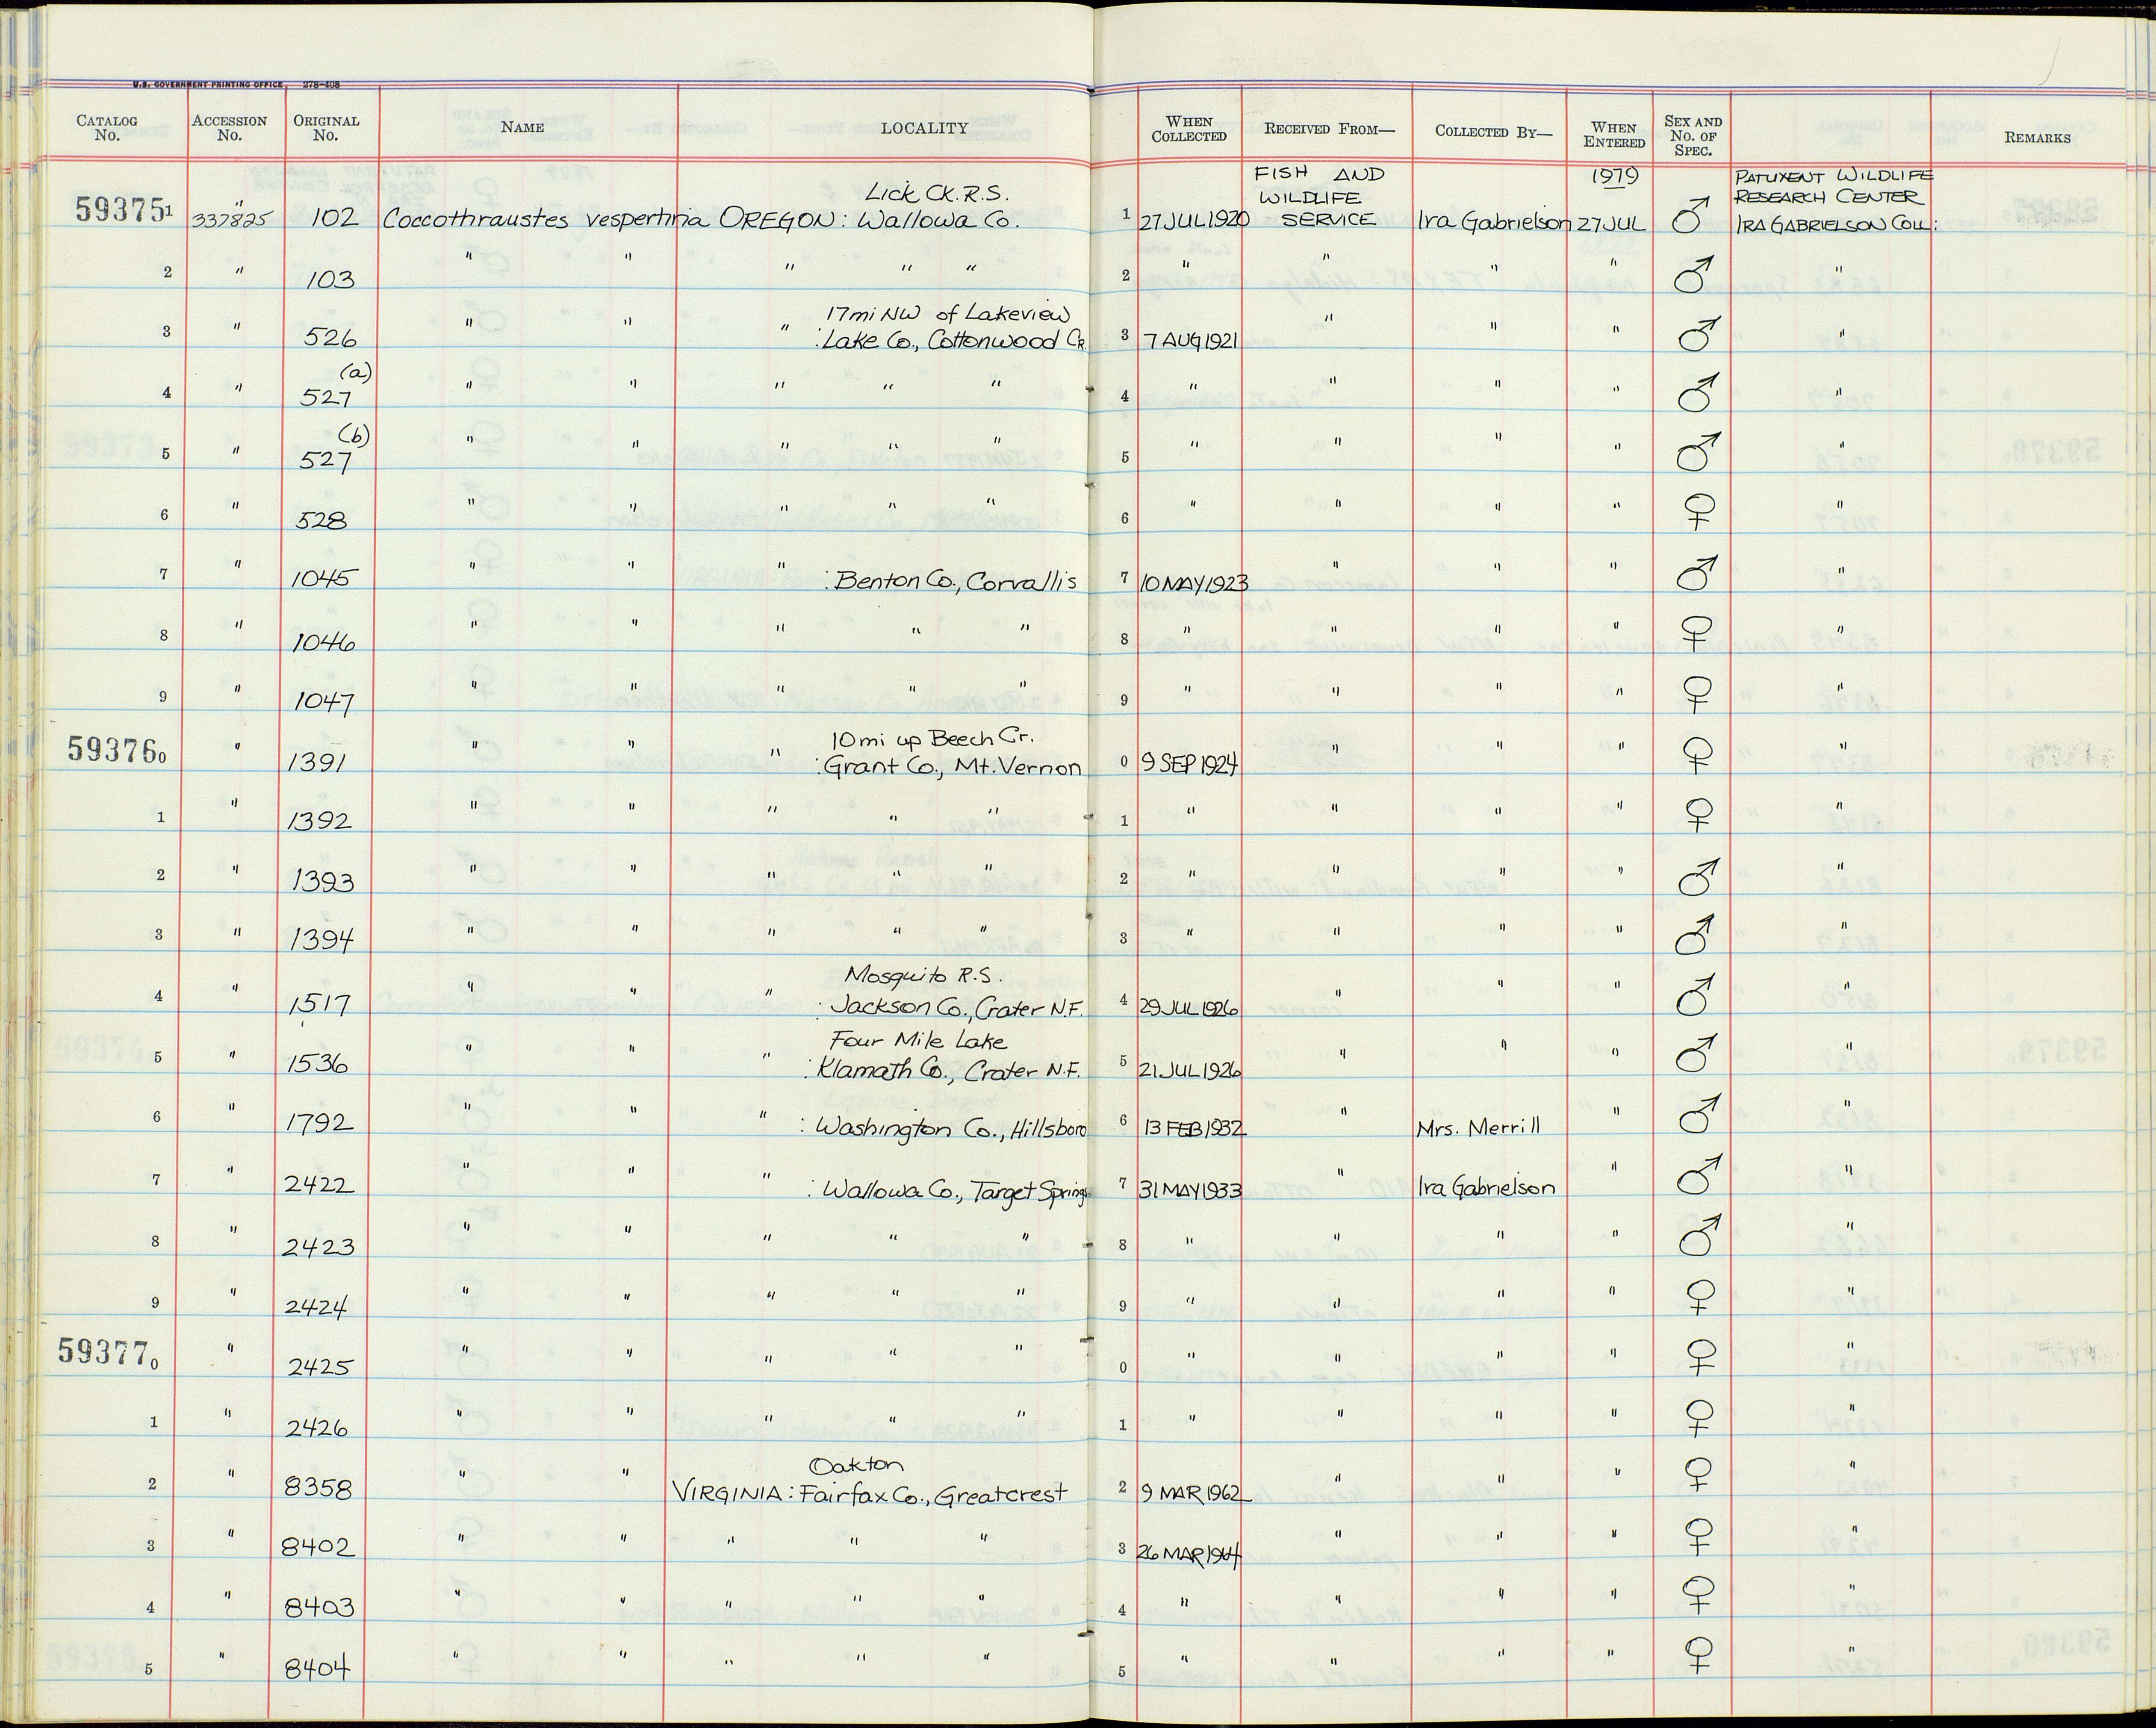 U.S. GOVERNMENT PRINTING OFFICE 278-408
CATALOG No. ACCESSION No. ORIGINAL No. NAME LOCALITY WHEN COLLECTED RECEIVED FROM— COLLECTED BY— WHEN ENTERED SEX AND No. OF SPEC. REMARKS
Lick Ck. R.S. FISH AND WILDLIFE 1979 PATUXENT WILDLIFE RESEARCH CENTER
593751 337825 102 Coccothraustes vespertina OREGON: Wallowa Co. 1 27 JUL 1920 SERVICE Ira Gabrielson 27 JUL ♂ IRA GABRIELSON COLL:
2 " 103 " " " " " 2 " " " " ♂ "
17mi NW of Lakeview
3 " 526 " " " : Lake Co., Cottonwood Cr. 3 7 AUG 1921 " " " ♂ "
(a)
4 " 527 " " " " " 4 " " " " ♂ "
(b)
5 " 527 " " " " " 5 " " " " ♂ "
6 " 528 " " " " " 6 " " " " ♀ "
7 " 1045 " " " : Benton Co., Corvallis 7 10 MAY 1923 " " " ♂ "
8 " 1046 " " " " " 8 " " " " ♀ "
9 " 1047 " " " " " 9 " " " " ♀ "
10mi up Beech Cr.
593760 " 1391 " " " : Grant Co., Mt. Vernon 0 9 SEP 1924 " " " ♀ "
1 " 1392 " " " " " 1 " " " " ♀ "
2 " 1393 " " " " " 2 " " " " ♂ "
3 " 1394 " " " " " 3 " " " " ♂ "
Mosquito R.S.
4 " 1517 " " " : Jackson Co., Crater N.F. 4 29 JUL 1926 " " " ♂ "
Four Mile Lake
5 " 1536 " " " : Klamath Co., Crater N.F. 5 21 JUL 1926 " " " ♂ "
6 " 1792 " " " : Washington Co., Hillsboro 6 13 FEB 1932 " Mrs. Merrill " ♂ "
7 " 2422 " " " : Wallowa Co., Target Springs 7 31 MAY 1933 " Ira Gabrielson " ♂ "
8 " 2423 " " " " " 8 " " " " ♂ "
9 " 2424 " " " " " 9 " " " " ♀ "
593770 " 2425 " " " " " 0 " " " " ♀ "
1 " 2426 " " " " " 1 " " " " ♀ "
Oakton
2 " 8358 " " VIRGINIA: Fairfax Co., Greatcrest 2 9 MAR 1962 " " " ♀ "
3 " 8402 " " " " " 3 26 MAR 1964 " " " ♀ "
4 " 8403 " " " " " 4 " " " " ♀ "
5 " 8404 " " " " " 5 " " " " ♀ "